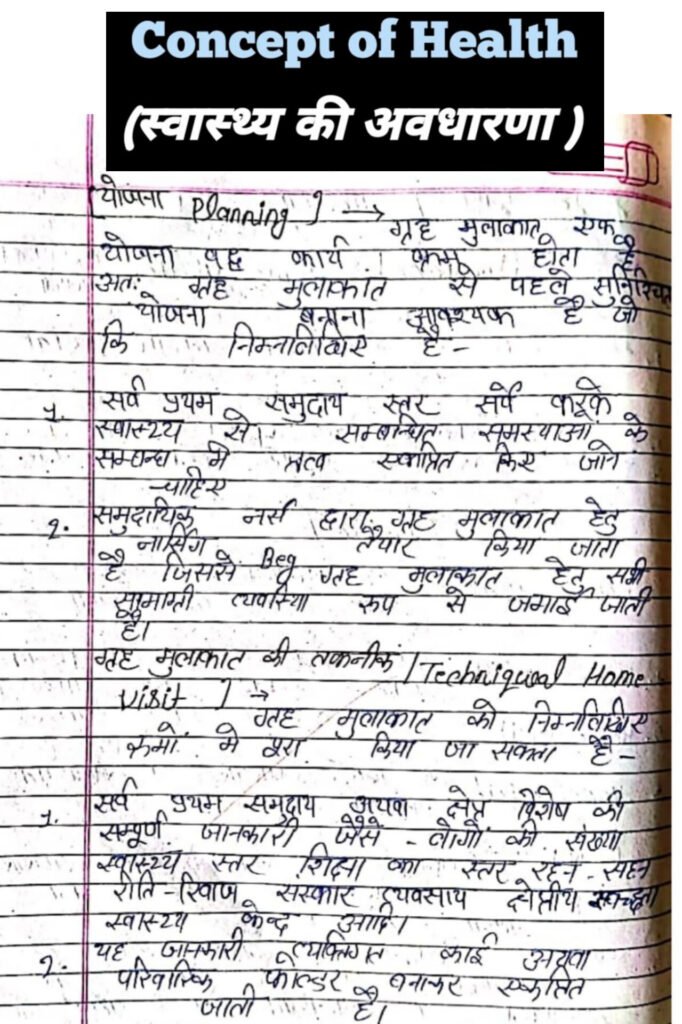 Concept of Health
(स्वास्थ्य की अवधारणा )
[योजना Planning ] → ग्रह मुलाकात एक
योजना वद्ध कार्य क्रम होता है
अतः ग्रह मुलाकात से पहले सुनिश्चित
योजना बनाना आवश्यक है जो
कि निम्नलिखित है -
1. सर्व प्रथम समुदाय स्तर सर्वे करके
स्वास्थ्य से सम्बन्धित समस्याओं के
सम्बन्ध में किए जाने
चाहिए
2. समुदायिक नर्स द्वारा ग्रह मुलाकात हेतु
नार्सिग Beg तैयार किया जाता
है जिससे ग्रह मुलाकात हेतु सभी
सामाग्री रूप से जमाई जाती
है।
ग्रह मुलाकात की तकनीक [Techniqual Home
visit ] →
ग्रह मुलाकात को निम्नलिखित
क्रमों में पूरा किया जा सकता है -
1. सर्व प्रथम समुदाय अथवा क्षेत्र विशेष की
सम्पूर्ण जानकारी जैसे - लोगों की संख्या
स्वास्थ्य स्तर शिक्षा का स्तर रहन - सहन
रीति - रिवाज संस्कार व्यवसाय क्षेत्रीय स्वच्छता
स्वास्थ्य केन्द आदि।
2. यह जानकारी व्यक्तिगत कार्ड अथवा
परिवारिक फोल्डर बनाकर एकत्रित
जाती है।